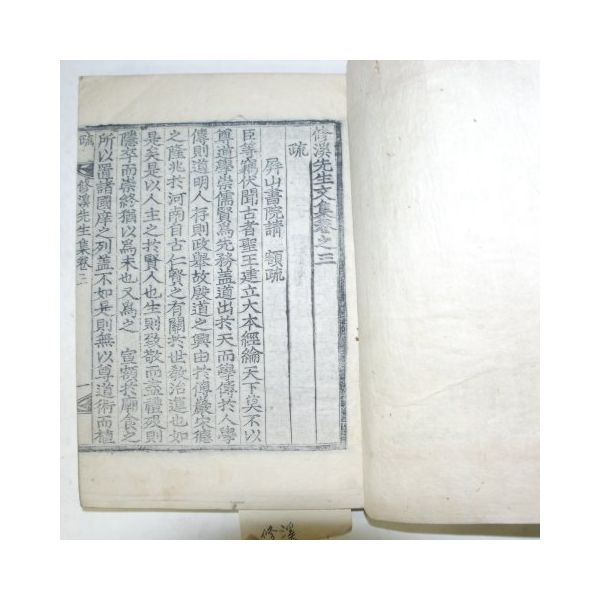 修溪先生文集卷之三
疏
屛山書院請 額疏
臣等竊伏聞古者聖王建立大本經綸天下莫不以
尊道學崇儒賢爲先務盖道出於天而學傳於人學
傳則道明人存則政擧故殷道之興由於傅巖宋德
之隆兆於河南自古仁賢之有關於世敎治道也如
是矣是以人主之於賢人也生則致敬而盡禮歿則
隱卒而崇終猶以爲未也又爲之 宣額於廟食之
所以置諸國庠之列盖不如是則無以尊道術而植
疏 修溪先生集卷三 一
修溪